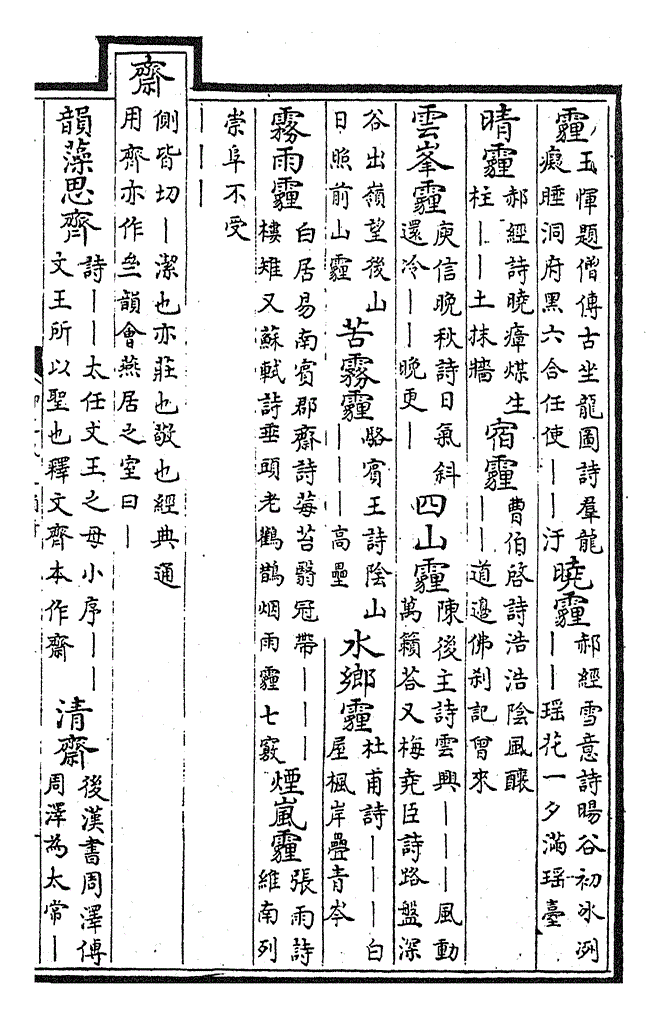 霾
王惲題僧傳古坐龍圖詩羣龍
癡睡洞府黑六合任使｜｜汙
曉霾
郝經雪意詩暘谷初冰冽
｜｜瑶花一夕滿瑶臺
晴霾
郝經詩曉瘴煤生
柱｜｜土抹牆
宿霾
曹伯啓詩浩浩陰風釀
｜｜道邊佛刹記曾來
雲峯霾
庾信晚秋詩日氣斜
還冷｜｜晚更｜
四山霾
陳後主詩雲興｜｜｜風動
萬籟荅又梅堯臣詩路盤深
谷出嶺望後山
日照前山霾
苦霧霾
駱賓王詩陰山
｜｜｜高壘
水鄉霾
杜甫詩｜｜｜白
屋楓岸疊青岑
霧雨霾
白居易南賓郡齋詩莓苔翳冠帶｜｜｜
樓雉又蘇軾詩垂頭老鸛鵲烟雨霾七竅
煙嵐霾
張雨詩
維南列
崇阜不受
｜｜｜
齋
側皆切｜潔也亦莊也敬也經典通
用齊亦作亝韻會燕居之室曰｜
韻藻思齊
詩｜｜太任文王之母小序｜｜
文王所以聖也釋文齊本作齋
清齋
後漢書周澤傳
周澤為太常｜